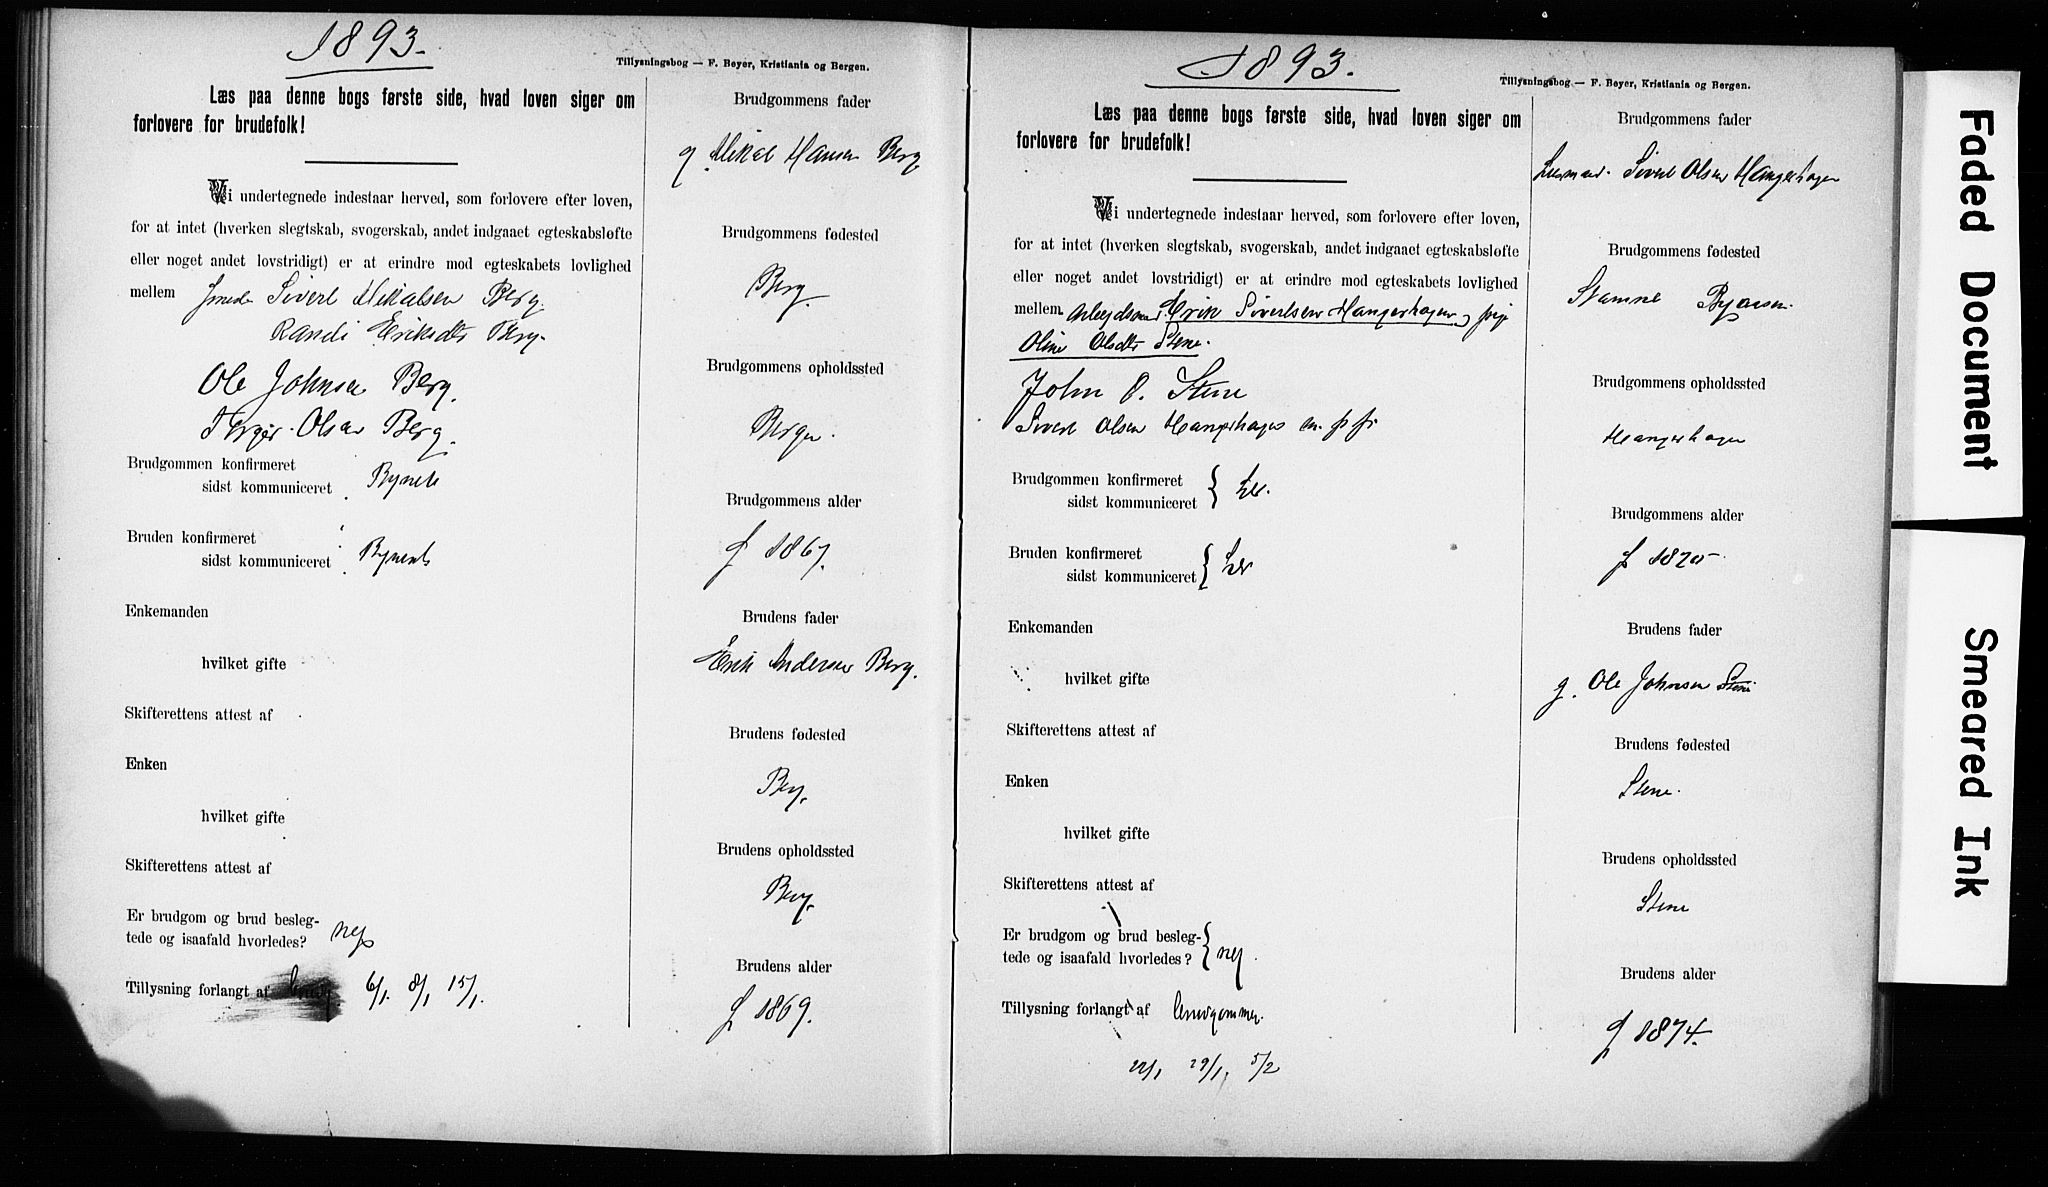 1893.
Tillysningsbog — F. Beyer, Kristiania og Bergen.
Læs paa denne bogs første side, hvad loven siger om
forlovere for brudefolk!
Vi undertegnede indestaar herved, som forlovere efter loven,
for at intet (hverken slegtskab, svogerskab, andet indgaaet egteskabsløfte
eller noget andet lovstridigt) er at erindre mod egteskabets lovlighed
mellem Sivert Mikalsen Berg.
Randi Eriksdtr Berg.
Ole Johnsen Berg.
Olsen Berg.
Brudgommen konfirmeret
sidst kommuniceret Bynes
Bruden konfirmeret
sidst kommuniceret Bynes
Enkemanden
hvilket gifte
Skifterettens attest af
Enken
hvilket gifte
Skifterettens attest af
Er brudgom og brud besleg-
tede og isaafald hvorledes? nej
Tillysning forlangt af 6/1. 8/1 15/1.
Brudgommens fader
g Mikal Hansen Berg
Brudgommens fødested
Berg.
Brudgommens opholdssted
Bergen.
Brudgommens alder
f 1867.
Brudens fader
Erik Andersen Berg.
Brudens fødested
Berg.
Brudens opholdssted
Berg.
Brudens alder
f 1869.
1893.
Tillysningsbog — F. Beyer, Kristiania og Bergen.
Læs paa denne bogs første side, hvad loven siger om
forlovere for brudefolk!
Vi undertegnede indestaar herved, som forlovere efter loven,
for at intet (hverken slegtskab, svogerskab, andet indgaaet egteskabsløfte
eller noget andet lovstridigt) er at erindre mod egteskabets lovlighed
mellem Arbejdsm. Erik Sivertsen Hangerhagen og pige
Oline Olsdtr Stene.
John O. Stene
Sivert Olsen Hangerhagen m. p p.
Brudgommen konfirmeret
sidst kommuniceret } her.
Bruden konfirmeret
sidst kommuniceret } her
Enkemanden
hvilket gifte
Skifterettens attest af
Enken
hvilket gifte
Skifterettens attest af
Er brudgom og brud besleg-
tede og isaafald hvorledes? } nej.
Tillysning forlangt af brudgommen.
22/1 29/1. 5/2
Brudgommens fader
Sivert Olsen Hangerhagen
Brudgommens fødested
Stamne
Brudgommens opholdssted
Hangerhagen
Brudgommens alder
f
Brudens fader
g. Ole Johnsen Stene
Brudens fødested
Stene.
Brudens opholdssted
Stene
Brudens alder
f 1874.
Faded Document
Smeared Ink